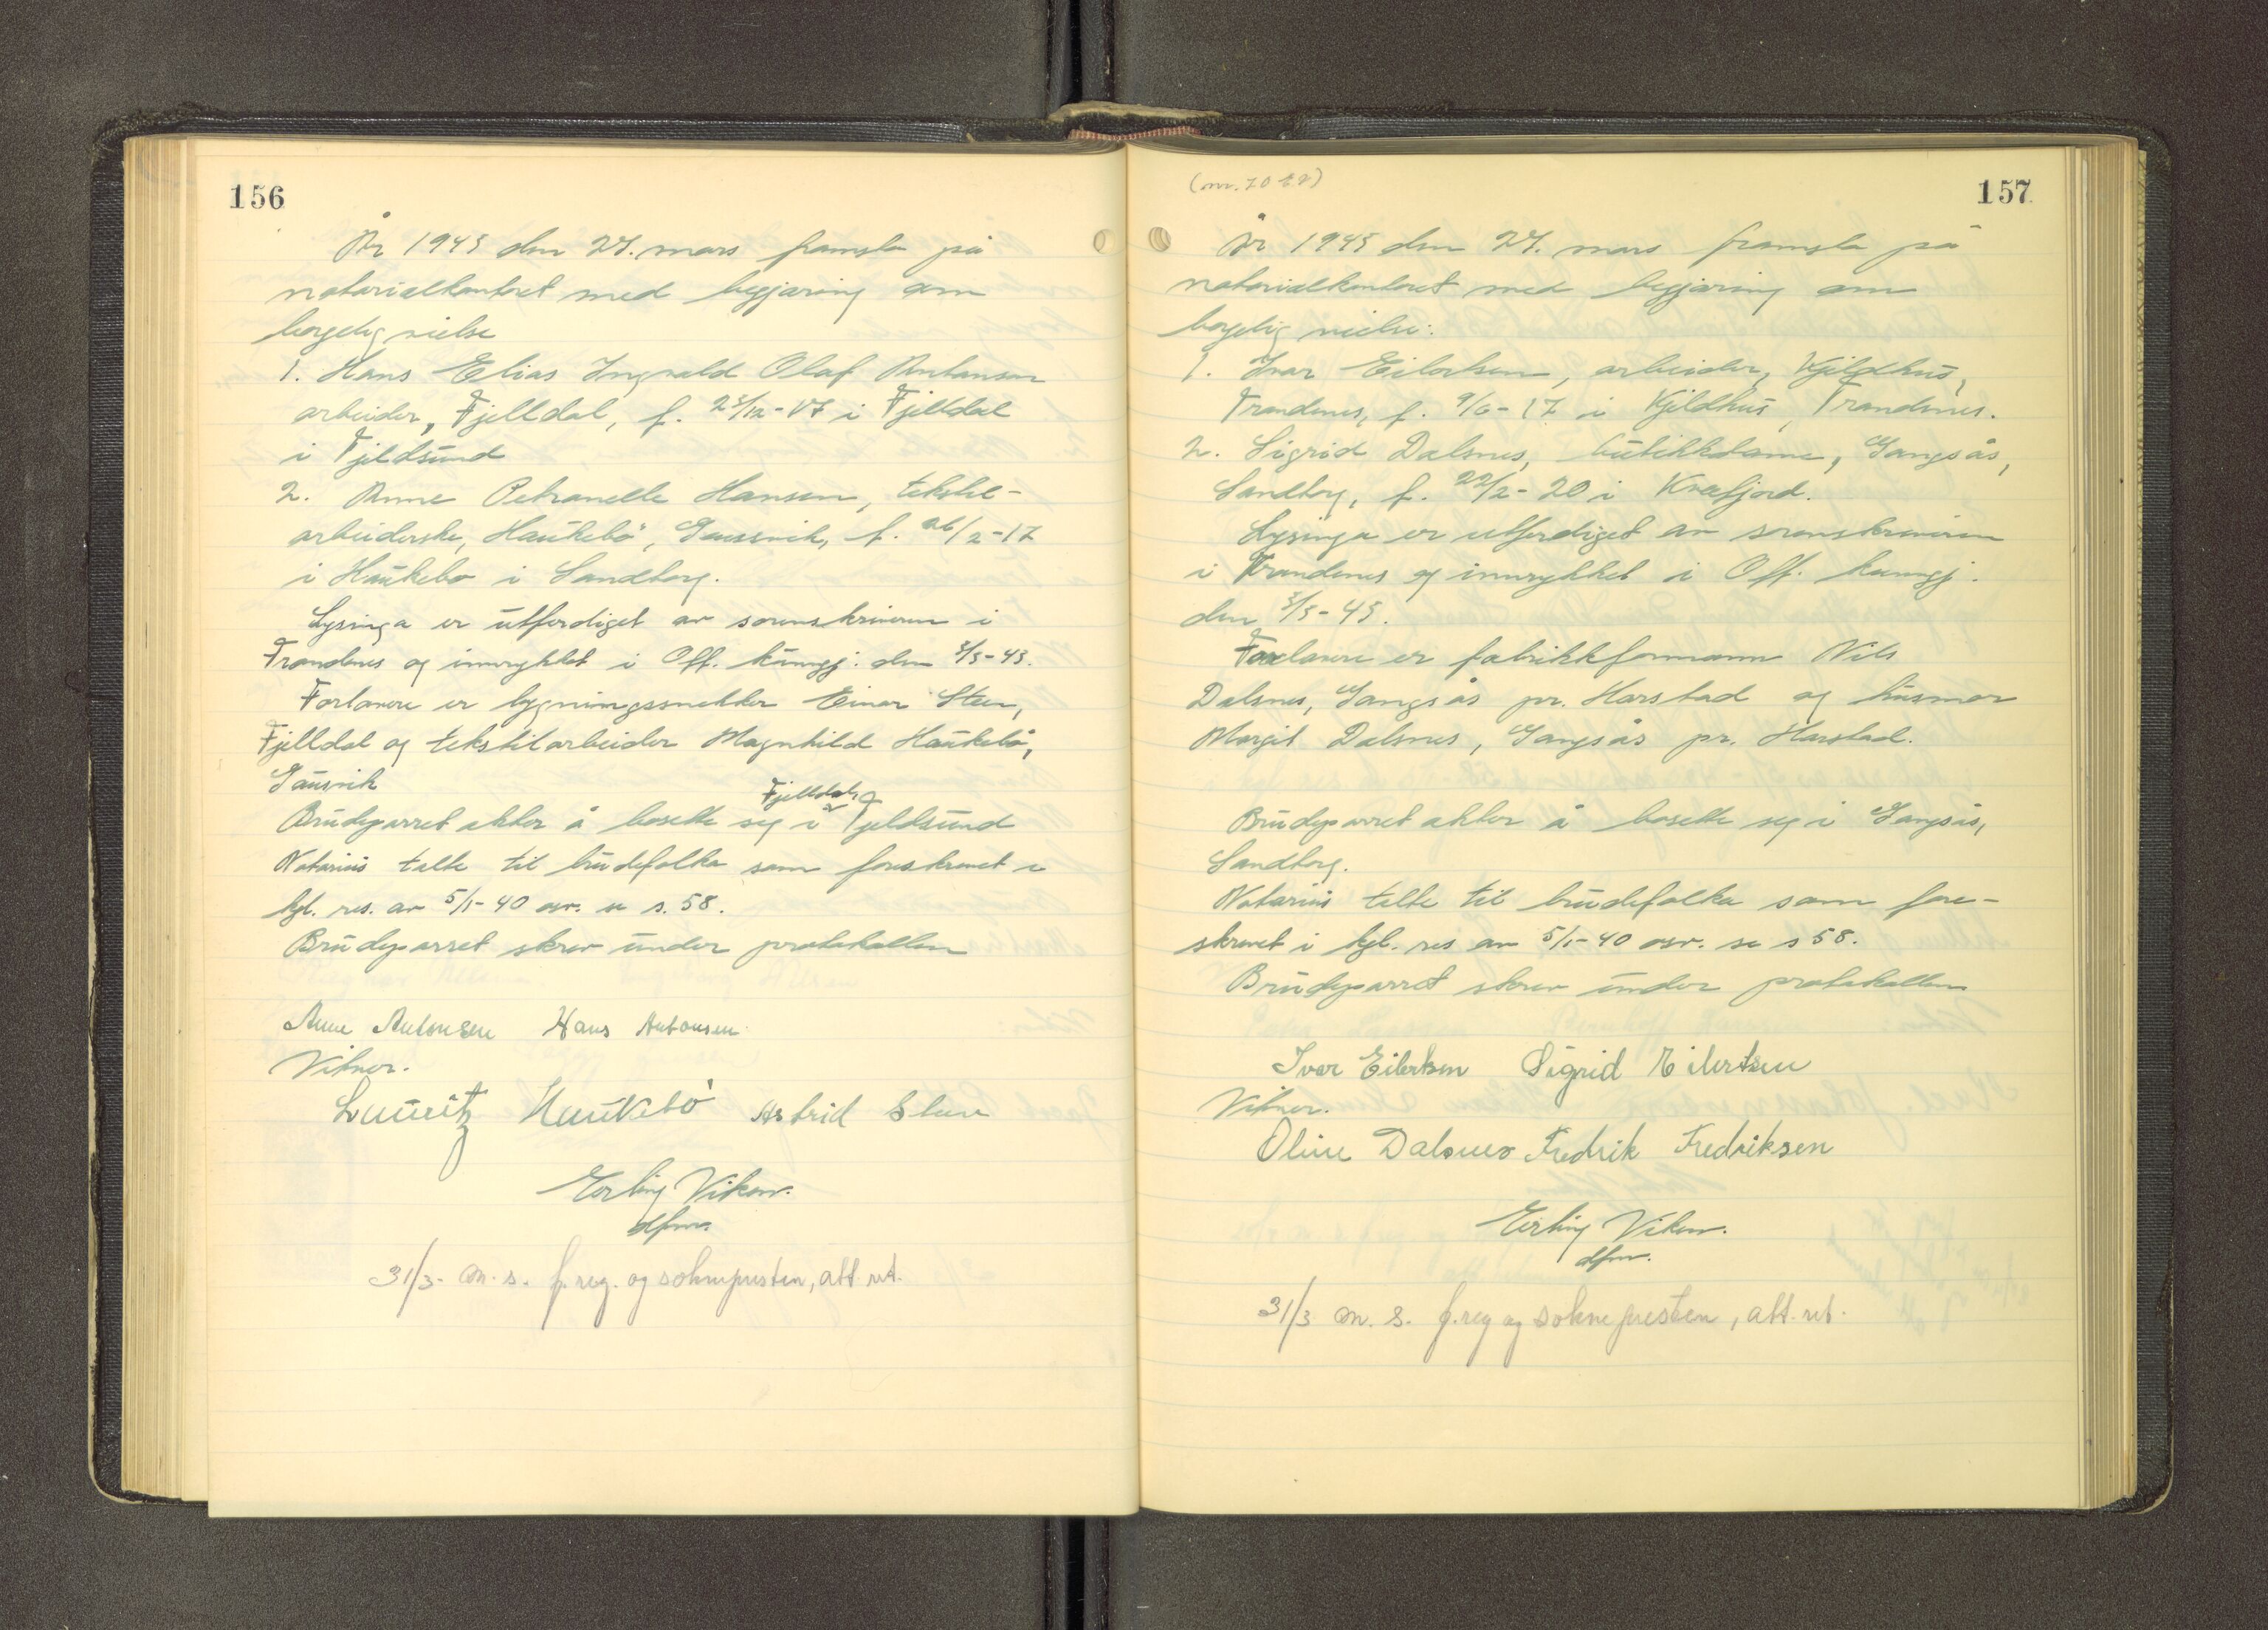 156
År 1945 den 24. mars framsto på
notarialkontoret med begjæring om
borgelig vielse
1. Hans Elias Ingvald Olaf Antonsen
arbeider, Fjelldal, f. 25/12-17 i Fjelldal
i Fjeldsund
2. Anne Petranelle Hansen, tekstil-
arbeiderske, Haukebø, Gausvik, f. 26/2-17
i Haukebø i Sandtorg.
Lysinga er utferdiget av sorenskriveren i
Trondenes og innrykket i Off. kunngj. den 5/3-45.
Forlovere er bygningssnekker Einar Steen,
Fjelldal og tekstilarbeider Magnhild Haukebø,
Gausvik
Fjelldal
Brudeparret akter å bosette seg i Fjeldsund
Notarius talte til brudefolka som foreskrevet i
kgl. res. av 5/1-40 osv. se s. 58.
Brudeparret skrev under protokollen
Anne Antonsen Hans Antonsen
Vitner.
Lauritz Haukebø Astrid Steen
Erling Viken.
dfm.
31/3- m. s. f.reg. og soknepresten, att. ret.
157
År 1945 den 24. mars framsto på
notarialkontoret med begjæring om
borgelig vielse:
1. Ivar Eilertsen, arbeider, Kjeldhus,
Trondenes, f. 9/6-17 i Kjeldhus, Trondenes.
2. Sigrid Dalsnes, butikkdame, Gangsås,
Sandtorg, f. 22/2-20 i Kvæfjord.
Lysinga er utferdiget av sorenskriveren
i Trondenes og innrykket i Off. kunngj.
den 5/3-45.
Forlovere er fabrikkformann Nils
Dalsnes, Gangsås pr. Harstad og husmor
Margit Dalsnes, Gangsås pr. Harstad.
Brudeparret akter å bosette seg i Gangsås,
Sandtorg.
Notarius talte til brudefolka som fore-
skrevet i kgl. res av 5/1-40 osv. se s 58.
Brudeparret skrev under protokollen
Ivar Eilertsen Sigrid Eilertsen
Vitner.
Oline Dalsnes Fredrik Fredriksen
Erling Viken.
dfm.
31/3 m. s. f.reg og soknepresten, att. ret.